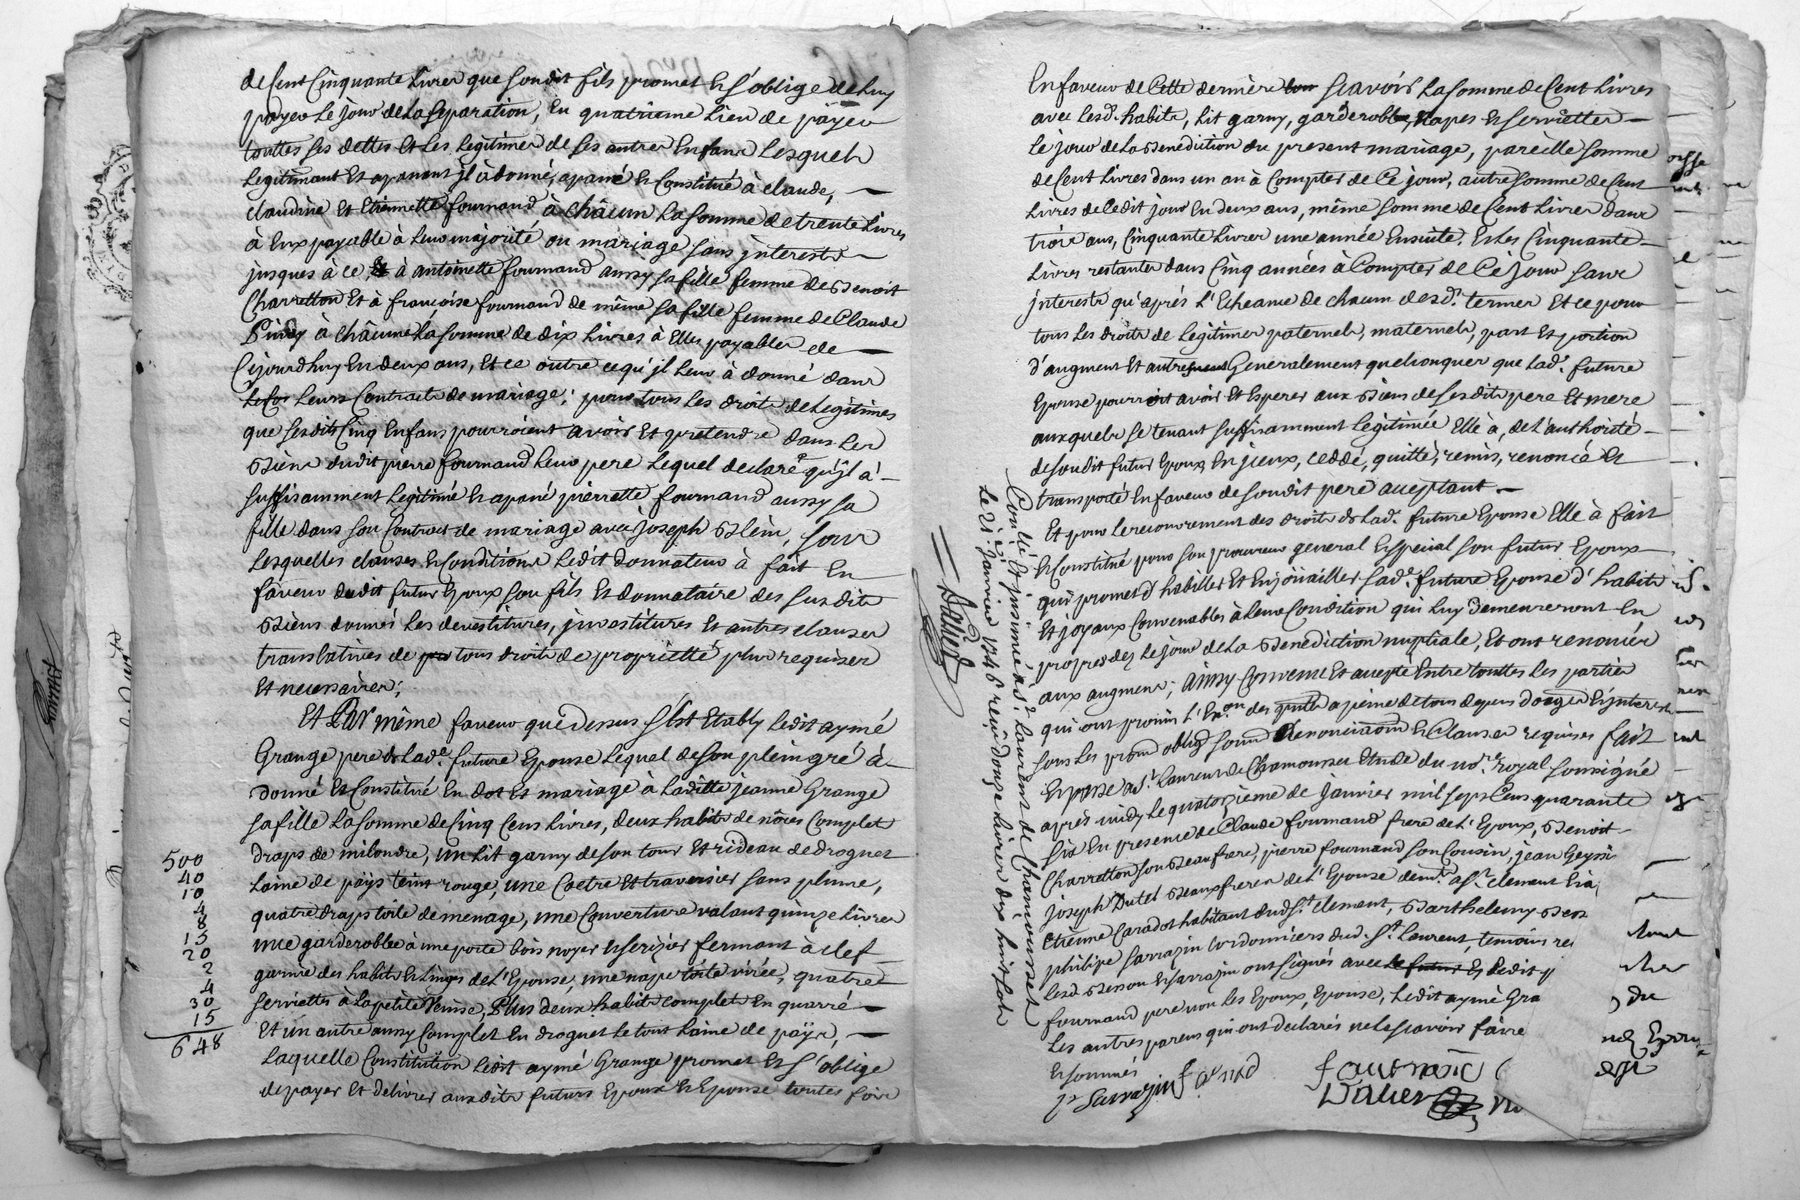 de Cent Cinquante Livres que sondit fils promet et s'oblige de luy
payer le jour de la separation, En quatrieme Lieu de payer
touttes ses dettes et les legitimes de ses autres Enfans lesquels
Legitimant et apanant jl à donné, apané et Constitué à Claude,
Claudine et Etiennette fournand à châcun la somme de trente Livres
à Eux payable à leur majorité ou mariage sans jnterests
jusques à ce à antoinette fournand aussy sa fille femme de Benoit
Charretton et à françoise fournand de même sa fille femme de Claude
à châcune la somme de dix Livres à Elles payables de
Cejourdhuy En deux ans, et ce outre ce qu'jl leur à donné dans
leurs Contracts de mariage; pour tous les droits de legitimes
que sesdits Cinq Enfans pourroient avoir et pretendre dans les
Biens dudit pierre fournand leur pere lequel declare qu'jl à
suffisamment legitimé et apané pierrette fournand aussy sa
fille dans son Contract de mariage avec joseph Blein, sous
lesquelles clauses et Conditions ledit donnateur à fait En
faveur dudit futur Epoux son fils et donnataire des susdits
Biens donnés les devestitures, jnvestitures et autres clauses
translatives de tous droits de proprietté plus requises
et necessaires;
Et Par même faveur que dessus s'est Etably ledit aymé
Grange pere de lad.e future Epouse lequel de son plein gré à
donné et Constitué En dot et mariage à laditte jeanne Grange
sa fille la somme de Cinq Cens Livres, deux habits de nôces Complets
draps de milondre, un lit garny de son tour et rideau de droguet
500
laine de païs teint rouge, une Coetre et traversier sans plume,
40
10
quatre draps toile de menage, une Couverture valant quinze Livres
4
8
une garderobbe à une porte bois noyer et serizier fermant à clef
15
20
garnie des habits et linges de l'Epouse, une nape toile virée, quatre
2
4
serviettes à la petite Venise, Plus deux habits complets En quarré
30
15
Et un autre aussy Complet En droguet le tout laine de païs,
648
Laquelle Constitution ledit aymé Grange promet et s'oblige
de payer et delivrer auxdits futurs Epoux et Epouse toutes fois
En faveur de Cette derniere sçavoir la somme de Cent Livres
avec lesd.s habits, lit garny, garderobbe, napes et serviettes
le jour de la Benediction du present mariage, pareille somme
de Cent Livres dans un an à Compter de Ce jour, autre somme de Cent
Livres de Cedit jour En deux ans, même somme de Cent Livres dans
trois ans, Cinquante Livres une année Ensuite, Et les Cinquante
Livres restantes dans Cinq années à Compter de Ce jour sans
jnterests qu'aprés l'Echeance de chacun desd.s termes Et ce pour
tous les droits de legitimes paternels, maternels, part et portion
d'augment et autres Generalement quelconques que lad.e future
Epouse pourroit avoir et Esperer aux Biens de sesdits pere et mere
auxquels se tenant suffisamment legitimée Elle à, de l'authorité
de sondit futur Epoux En jceux, ceddé, quitté, remis, renoncé et
transporté En faveur de sondit pere acceptant.
Et pour le recouvrement des droits de lad.e future Epouse Elle à fait
et Constitué pour son procureur general et special son futur Epoux
qui promet d'habiller et Enjoüailler sad.e future Epouse d'habits
et joyaux Convenables à leur Condition qui luy demeureront En
propre dez le jour de la Benediction nuptiale, et ont renoncés
aux augmens, Ainsy Convenu et accepté Entre touttes les parties
qui ont promis l'Ex.on des à peine de tous depens domages et jnterests
sous les obligâ.ons soumis.ons renonciations et Clauses requises fait
et passé à S.t Laurent de Chamousset Etude du not.re royal soussigné
après midy le quatorzieme de janvier mil sept Cens quarante
six En presence de Claude fournand frere de l'Epoux, Benoit
Charretton son Beaufrere, pierre fournand son Cousin, jean Geyssi
joseph Dutel Beauxfreres de l'Epouse dem.ts à S.t clement
Etienne Caradot habitant dud. S.t clement, Barthelemy
philipe Sarrazin Cordonniers dud. S.t Laurent, temoins
lesd. et sarrazin ont signés avec Et ledit
fournand pere non les Epoux, Epouse, ledit aymé Gra
les autres parens qui ont declarés ne le sçavoir faire
et sommés
Sarrazin
Dalier
Controllé et jnsinué à S.t Laurent de Chamousset
le 21 janvier 1746 reçu douze Livres dix huit sols
Dalier